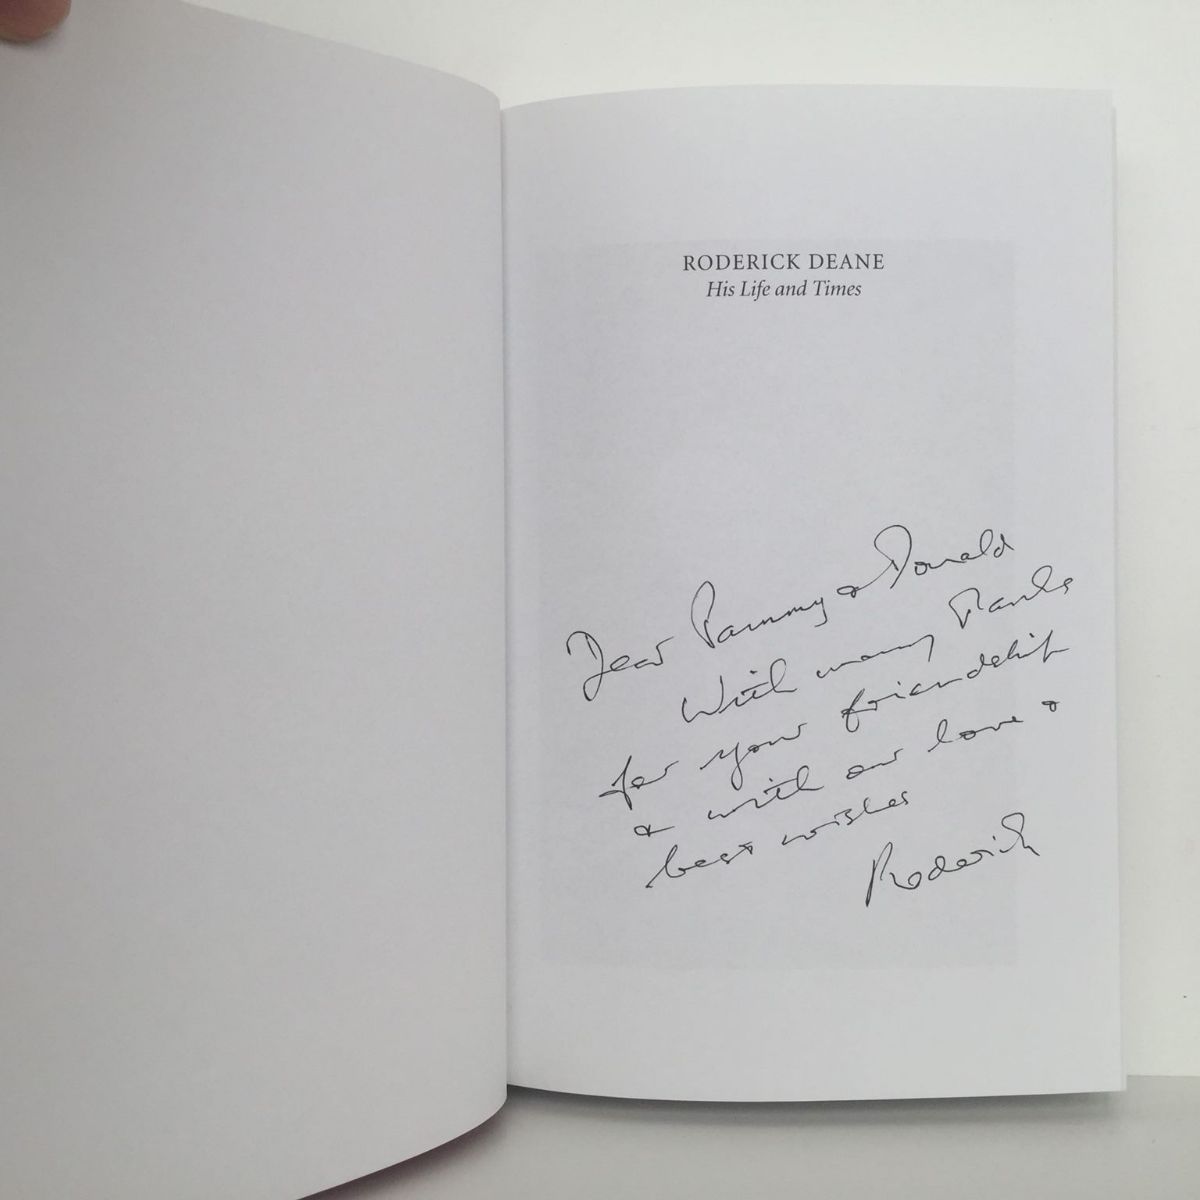 RODERICK DEANE
His Life and Times
Dear Pammy & Donald
With many thanks
for your friendship
& with our love &
best wishes
Roderick